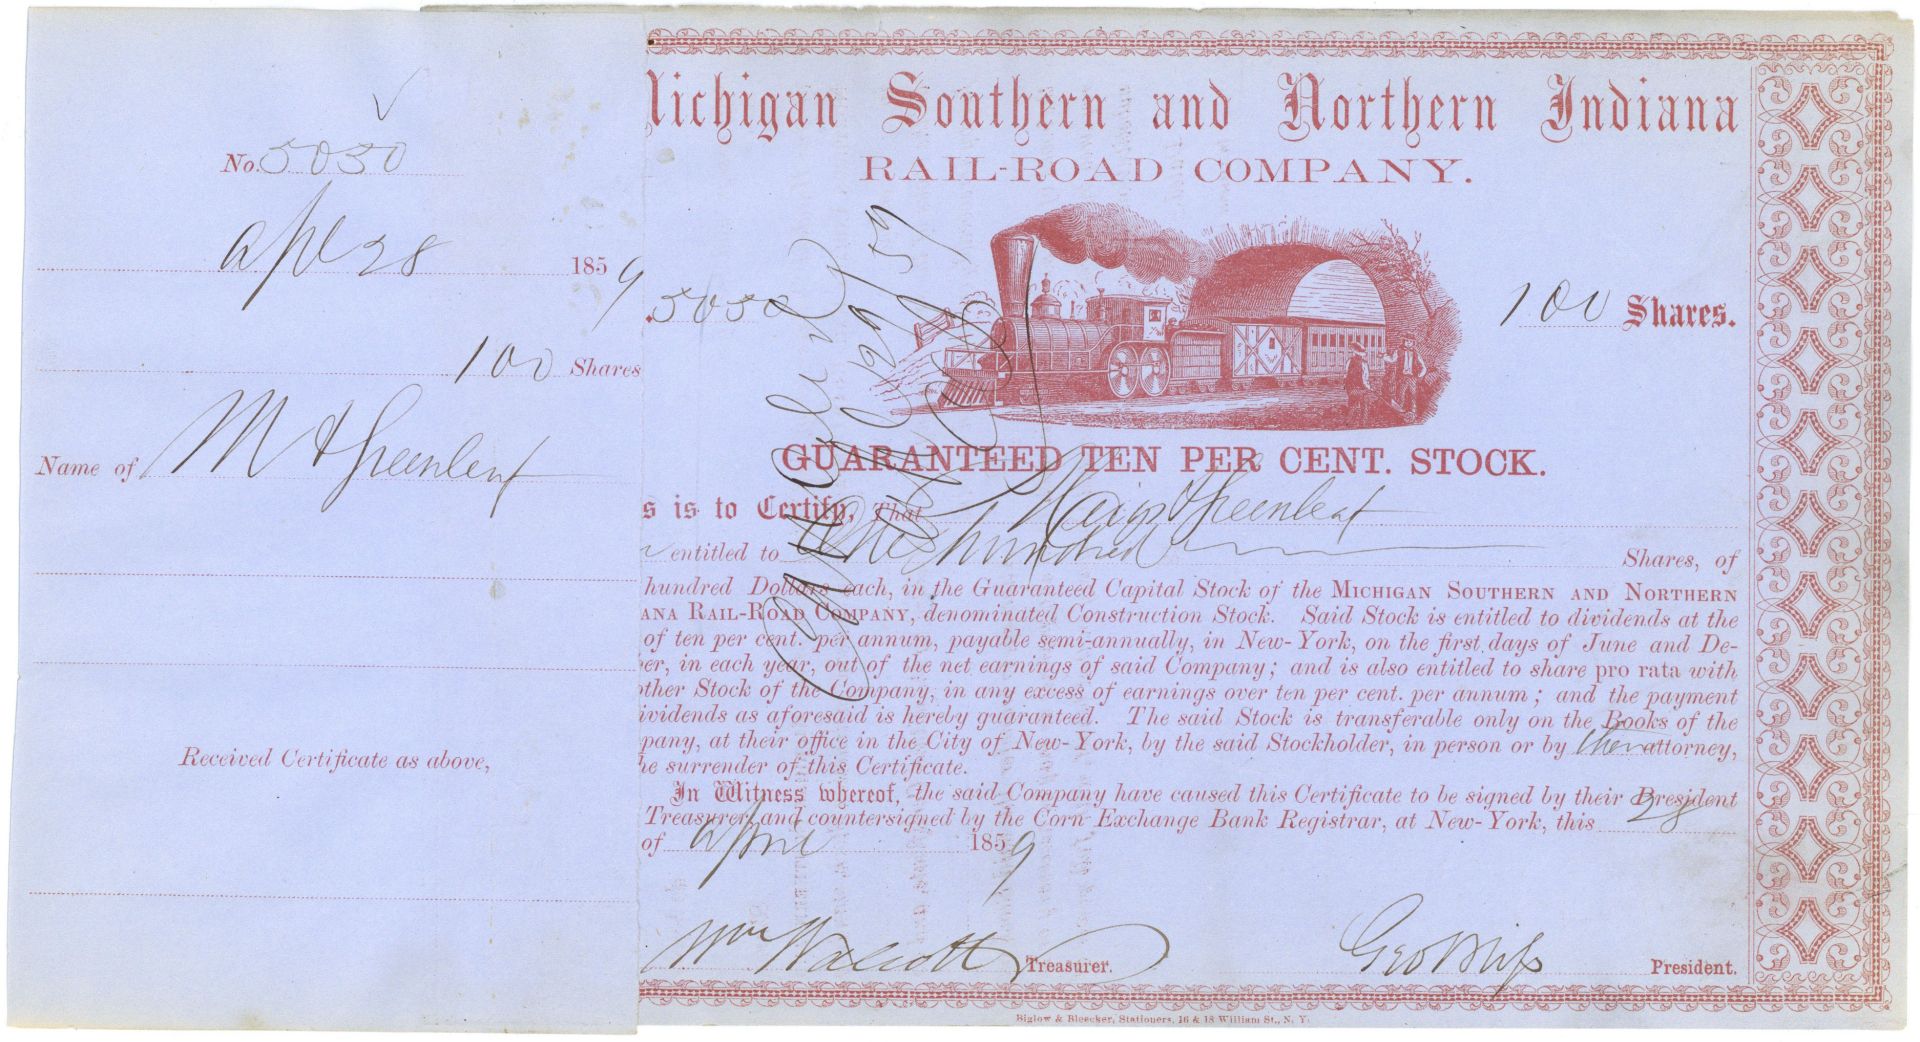 No. 5050
Apl 28 1859
100 Shares
Name of M & Greenleaf
Received Certificate as above,
Michigan Southern and Northern Indiana
RAIL-ROAD COMPANY.
5050
100 Shares.
GUARANTEED TEN PER CENT. STOCK.
s is to Certify, That Haigs & Greenleaf
entitled to One hundred Shares, of
hundred Dollars each, in the Guaranteed Capital Stock of the MICHIGAN SOUTHERN AND NORTHERN
ANA RAIL-ROAD COMPANY, denominated Construction Stock. Said Stock is entitled to dividends at the
of ten per cent. per annum, payable semi-annually, in New-York, on the first days of June and De-
er, in each year, out of the net earnings of said Company; and is also entitled to share pro rata with
other Stock of the Company, in any excess of earnings over ten per cent. per annum; and the payment
ividends as aforesaid is hereby guaranteed. The said Stock is transferable only on the Books of the
pany, at their office in the City of New-York, by the said Stockholder, in person or by their attorney,
he surrender of this Certificate.
In Witness whereof, the said Company have caused this Certificate to be signed by their President
Treasurer, and countersigned by the Corn Exchange Bank Registrar, at New-York, this 28
of April 1859
Wm Walcott Treasurer.
Geo Bliss President.
Biglow & Bleecker, Stationers, 16 & 18 William St., N. Y.
Cancelled